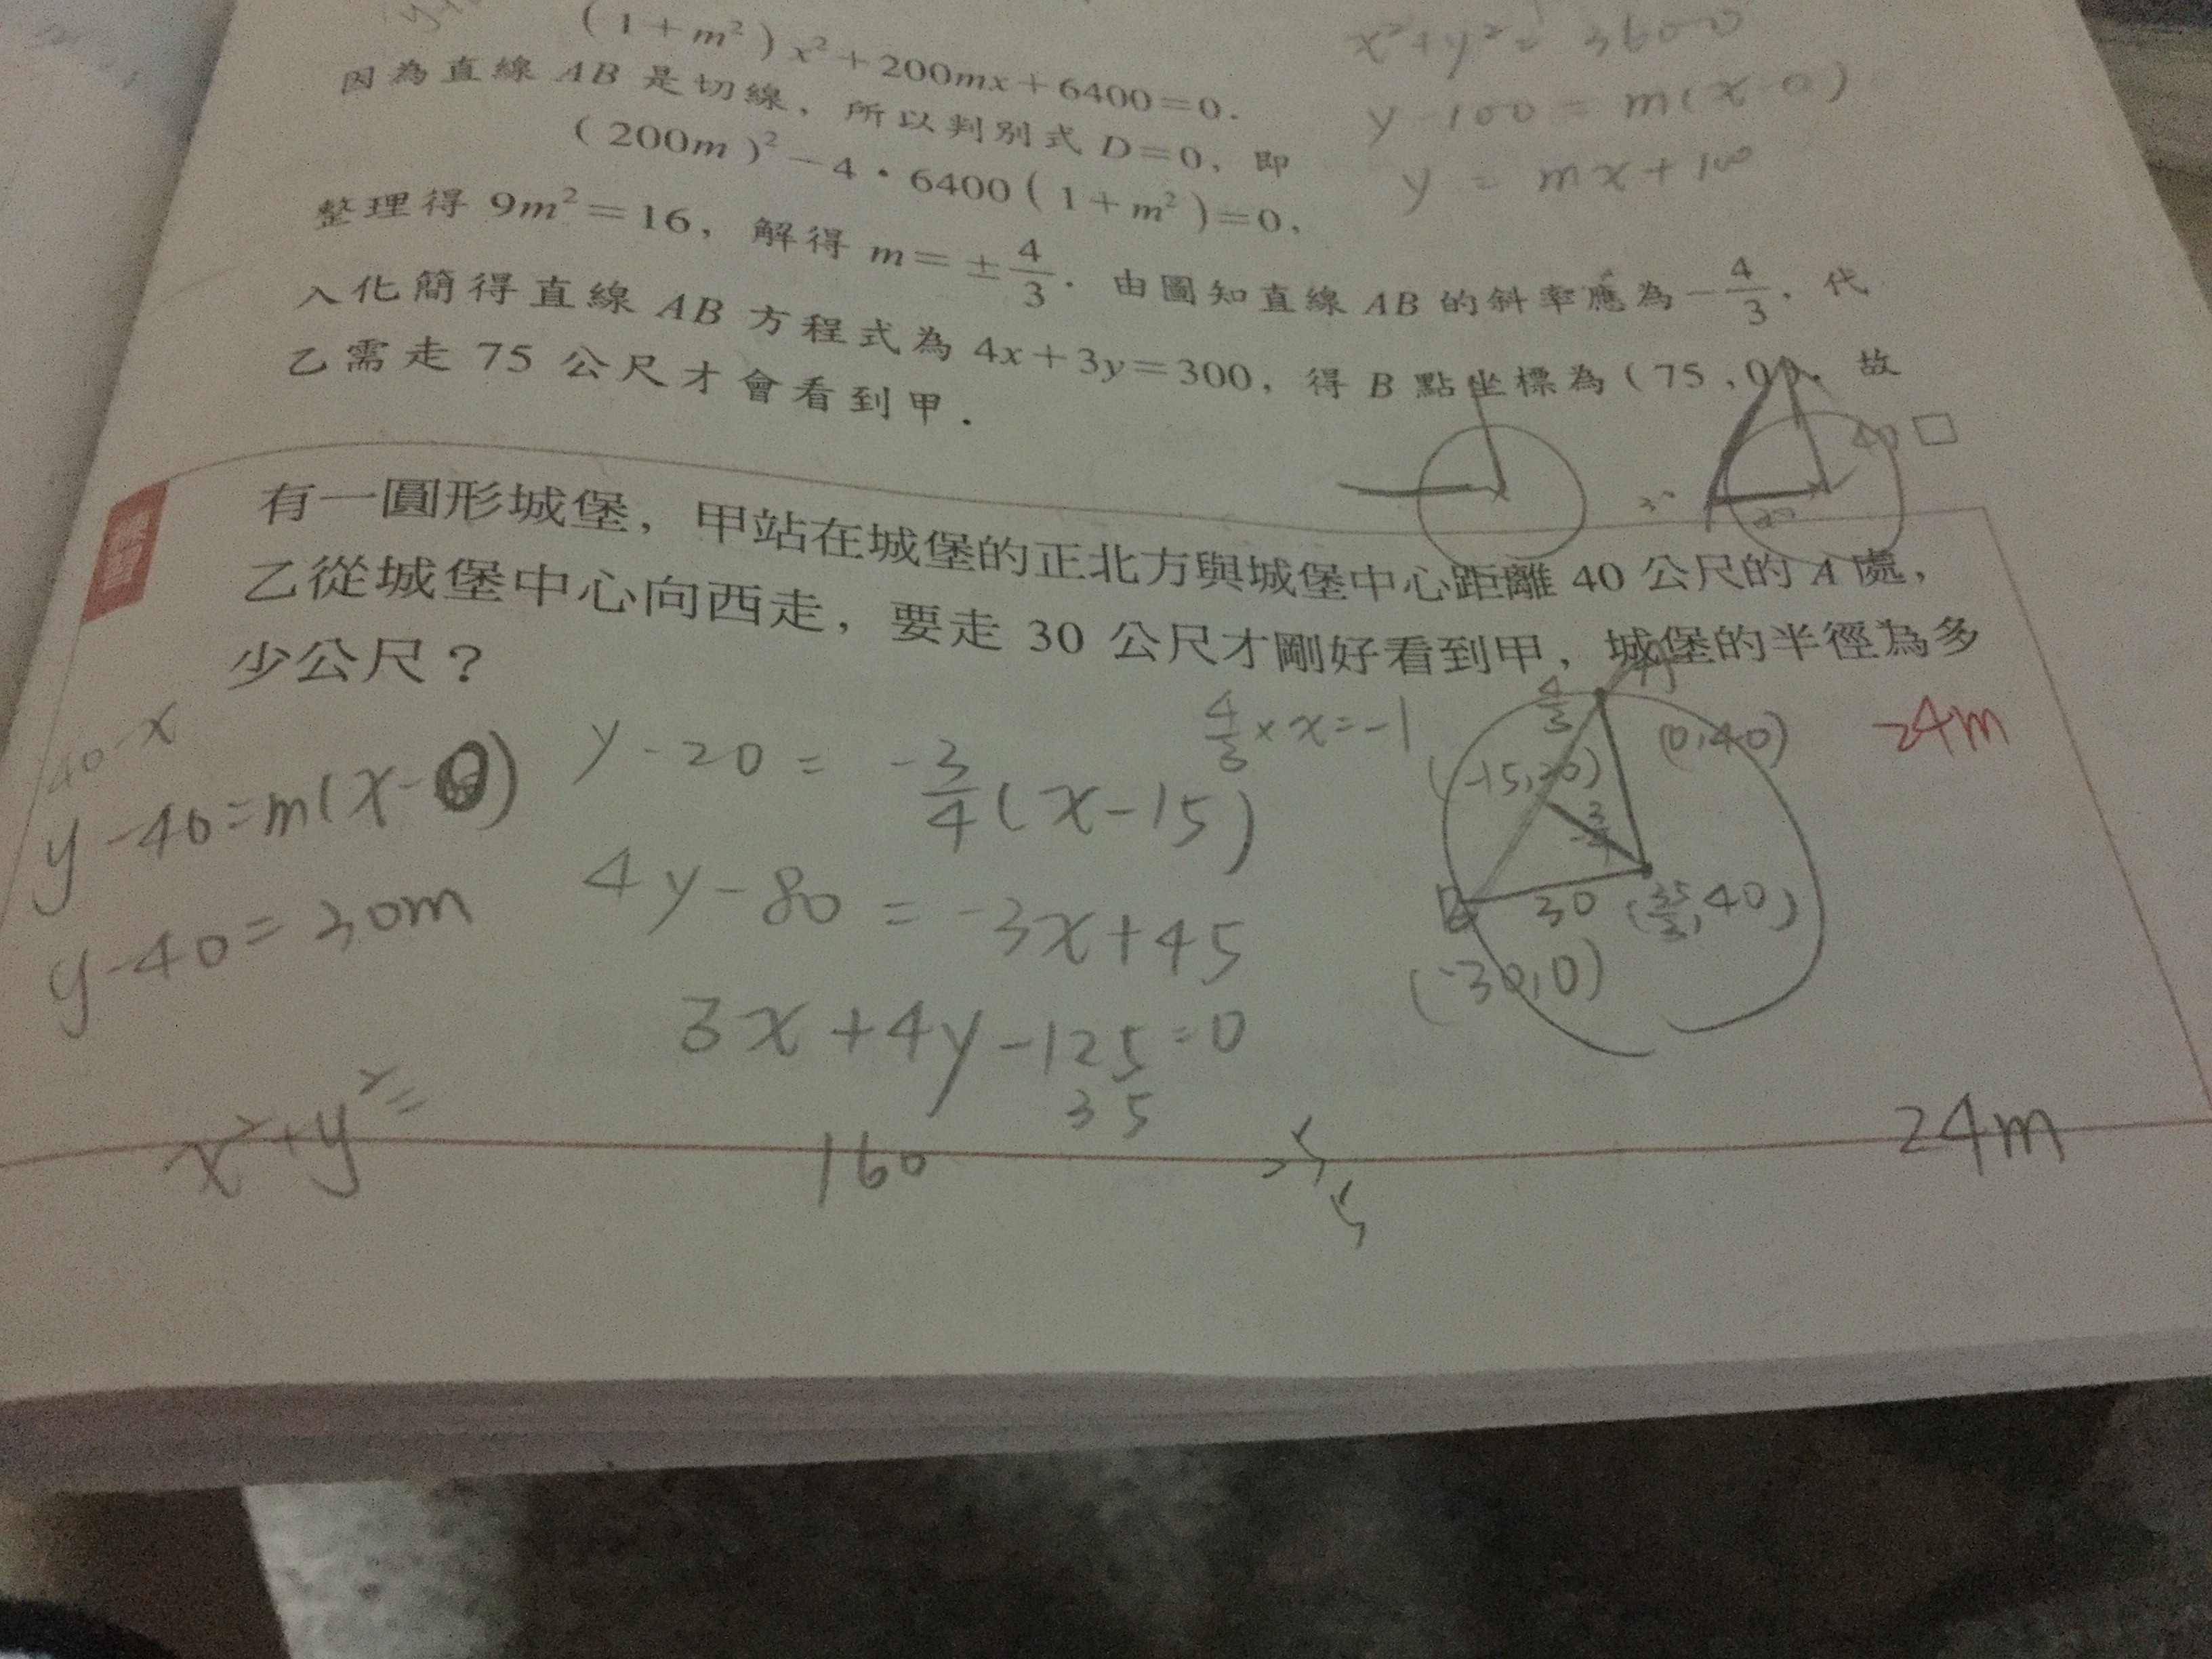 (1+m²)x²+200mx+6400=0.
因為直線 AB 是切線，所以判別式 D=0，即
(200m)²-4·6400(1+m²)=0，
整理得 9m²=16，解得 m=±4/3．由圖知直線 AB 的斜率應為-4/3，代
入化簡得直線 AB 方程式為 4x+3y=300，得 B 點坐標為(75,0)．故
乙需走 75 公尺才會看到甲．
x²+y²=3600
y-100=m(x-0)
y=mx+100
40
30
有一圓形城堡，甲站在城堡的正北方與城堡中心距離 40 公尺的 A 處，
乙從城堡中心向西走，要走 30 公尺才剛好看到甲，城堡的半徑為多
少公尺？
40-x
y-40=m(x-0)
y-40=30m
x²+y²=
y-20=-3/4(x-15)
4y-80=-3x+45
3x+4y-125=0
35
160
4/3×x=-1
4/3
(0,40)
(-15,20)
-3/4
30
(-30,0)
24m
24m